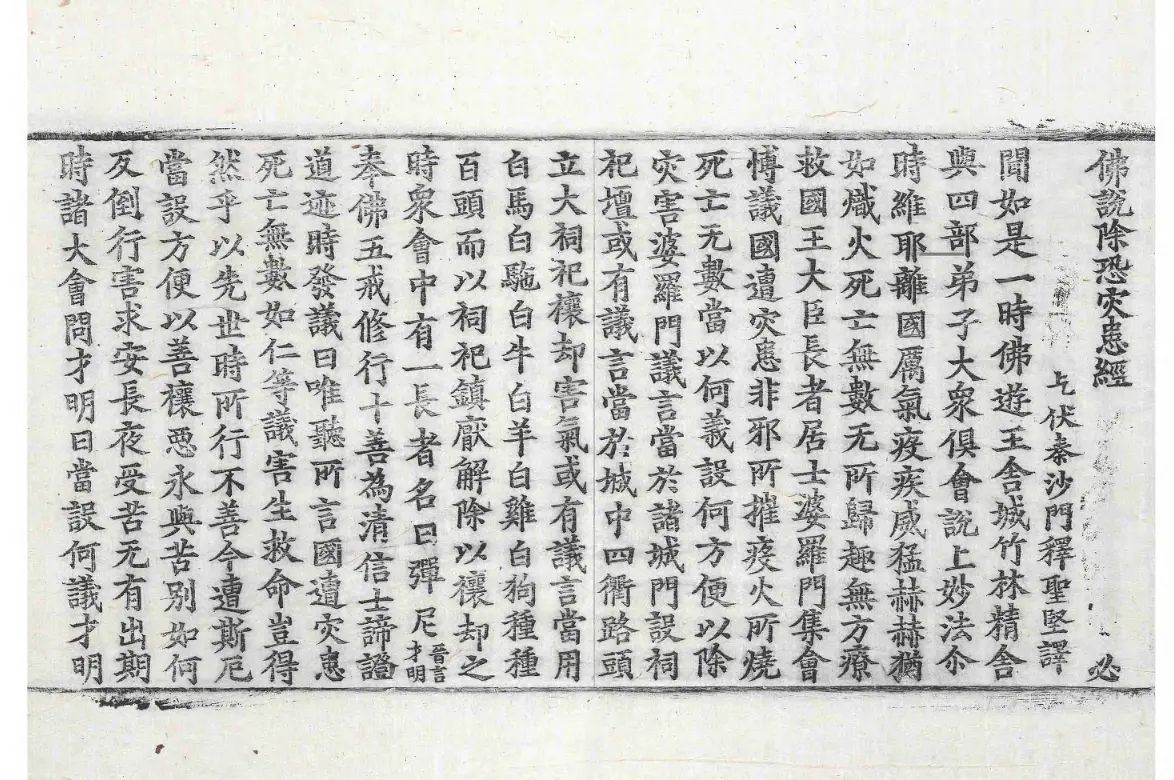 佛說除恐灾患經　必
乞伏秦沙門釋聖堅譯
聞如是一時佛遊王舍城竹林精舍
與四部弟子大衆俱會說上妙法尒
時維耶離國厲氣疫疾威猛赫赫猶
如熾火死亡無數无所歸趣無方療
救國王大臣長者居士婆羅門集會
愽議國遭灾患非邪所摧疫火所燒
死亡无數當以何義設何方便以除
灾害婆羅門議言當於諸城門設祠
祀壇或有議言當於城中四衢路頭
立大祠祀禳却害氣或有議言當用
白馬白駞白牛白羊白雞白狗種種
百頭而以祠祀鎮厭解除以禳却之
時衆會中有一長者名曰彈尼晉言才明
奉佛五戒修行十善為清信士諦證
道迹時發議曰唯聽所言國遭灾患
死亡無數如仁等議害生救命豈得
然乎以先世時所行不善今遭斯厄
當設方便以善禳悪永與苦別如何
反倒行害求安長夜受苦无有出期
時諸大會問才明曰當設何議才明